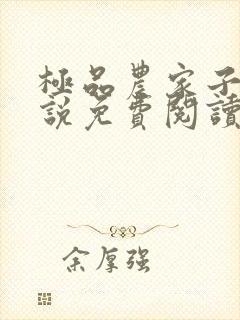 極品農家子
說免費閱讀
余厚强